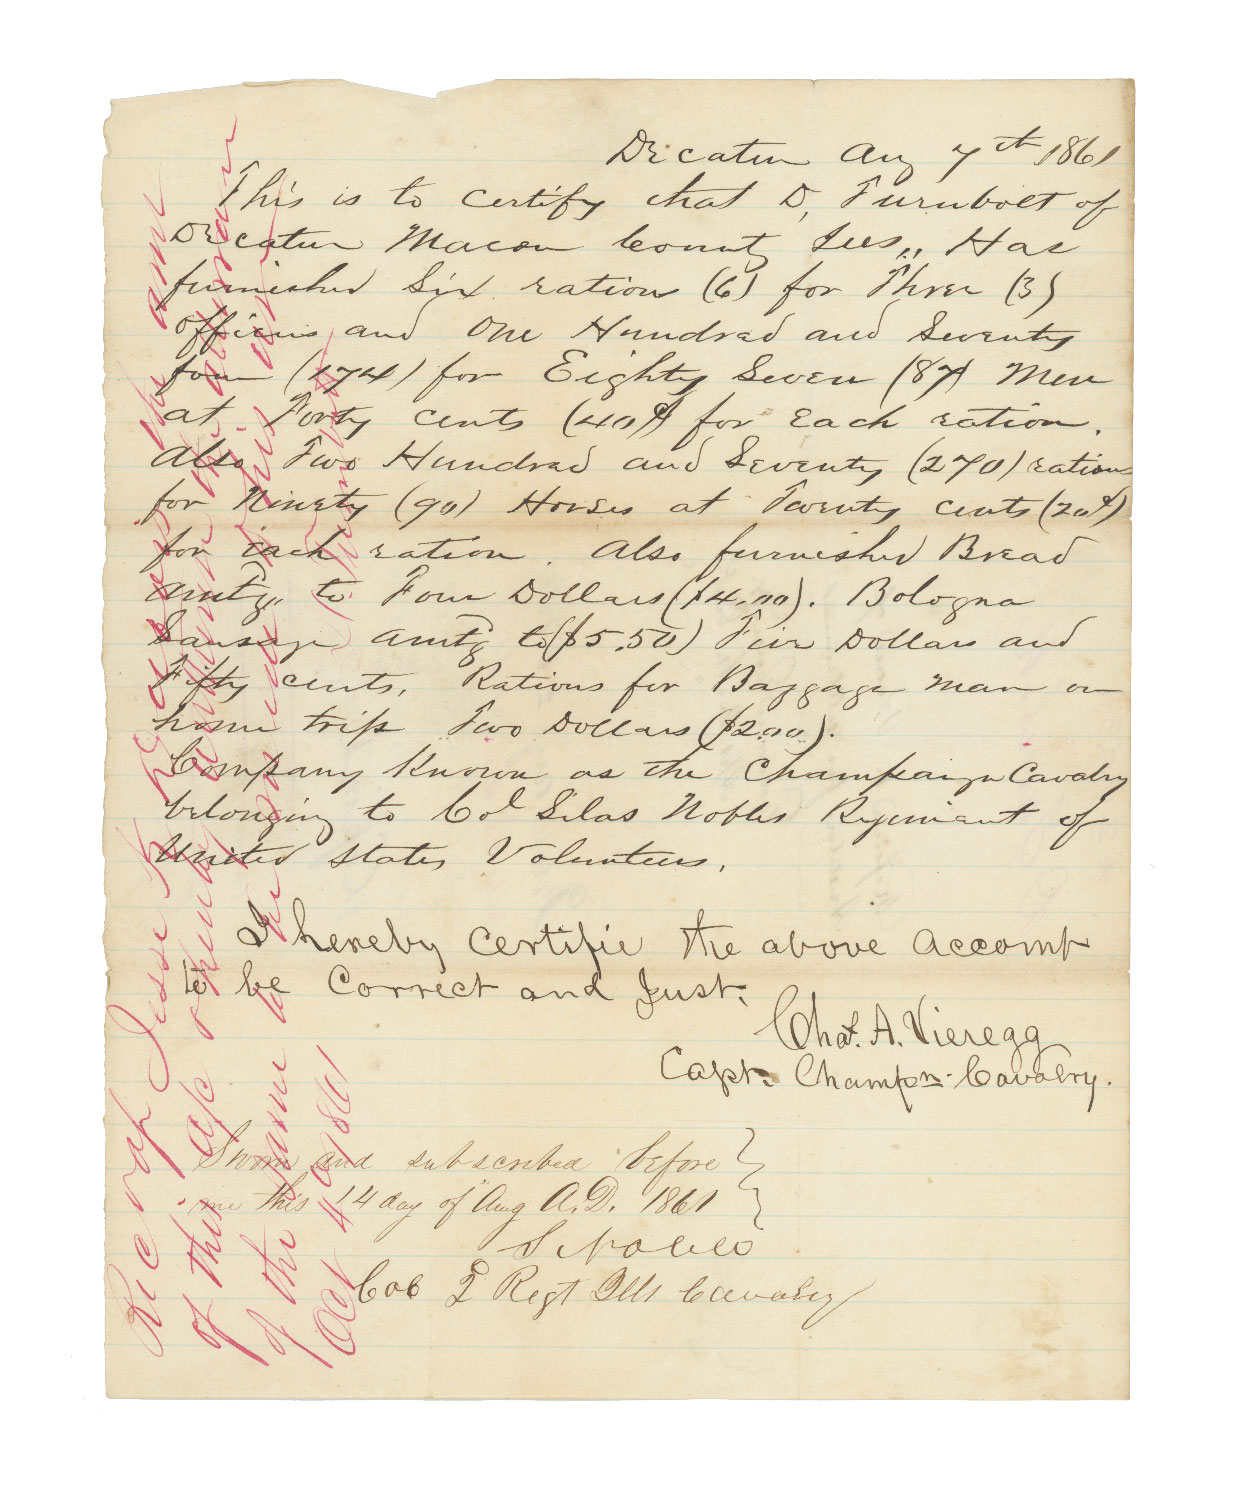 Decatur Aug 7th 1861
This is to certify that D, Turnbolt of
Decatur Macon County Ills,, Has
furnished Six ration (6) for Three (3)
officers and One Hundred and Seventy
four (174) for Eighty Seven (87) Men
at Forty cents (40¢) for Each ration.
Also Two Hundred and Seventy (270) ration
for Ninety (90) Horses at Twenty cents (20¢)
for each ration. Also furnished Bread
amtg,, to Four Dollars ($4.00). Bologna
Sausage amtg to ($5.50) Five Dollars and
Fifty cents, Rations for Baggage man on
home trip Two Dollars ($2.00).
Company Known as the Champaign Cavalry
belonging to Col Silas Nobles Regiment of
United States Volunteers.
I hereby Certifie the above Accompt
to be Correct and Just.
Chas. A. Vieregg
Capt. Champn. Cavalry.
Sworn and subscribed before
me this 14 day of Aug A.D. 1861
S Noble
Col 2 Regt Ills Cavalry
Rec of Jesse K the amt
of this a/c
of the same
Oct 4 1861